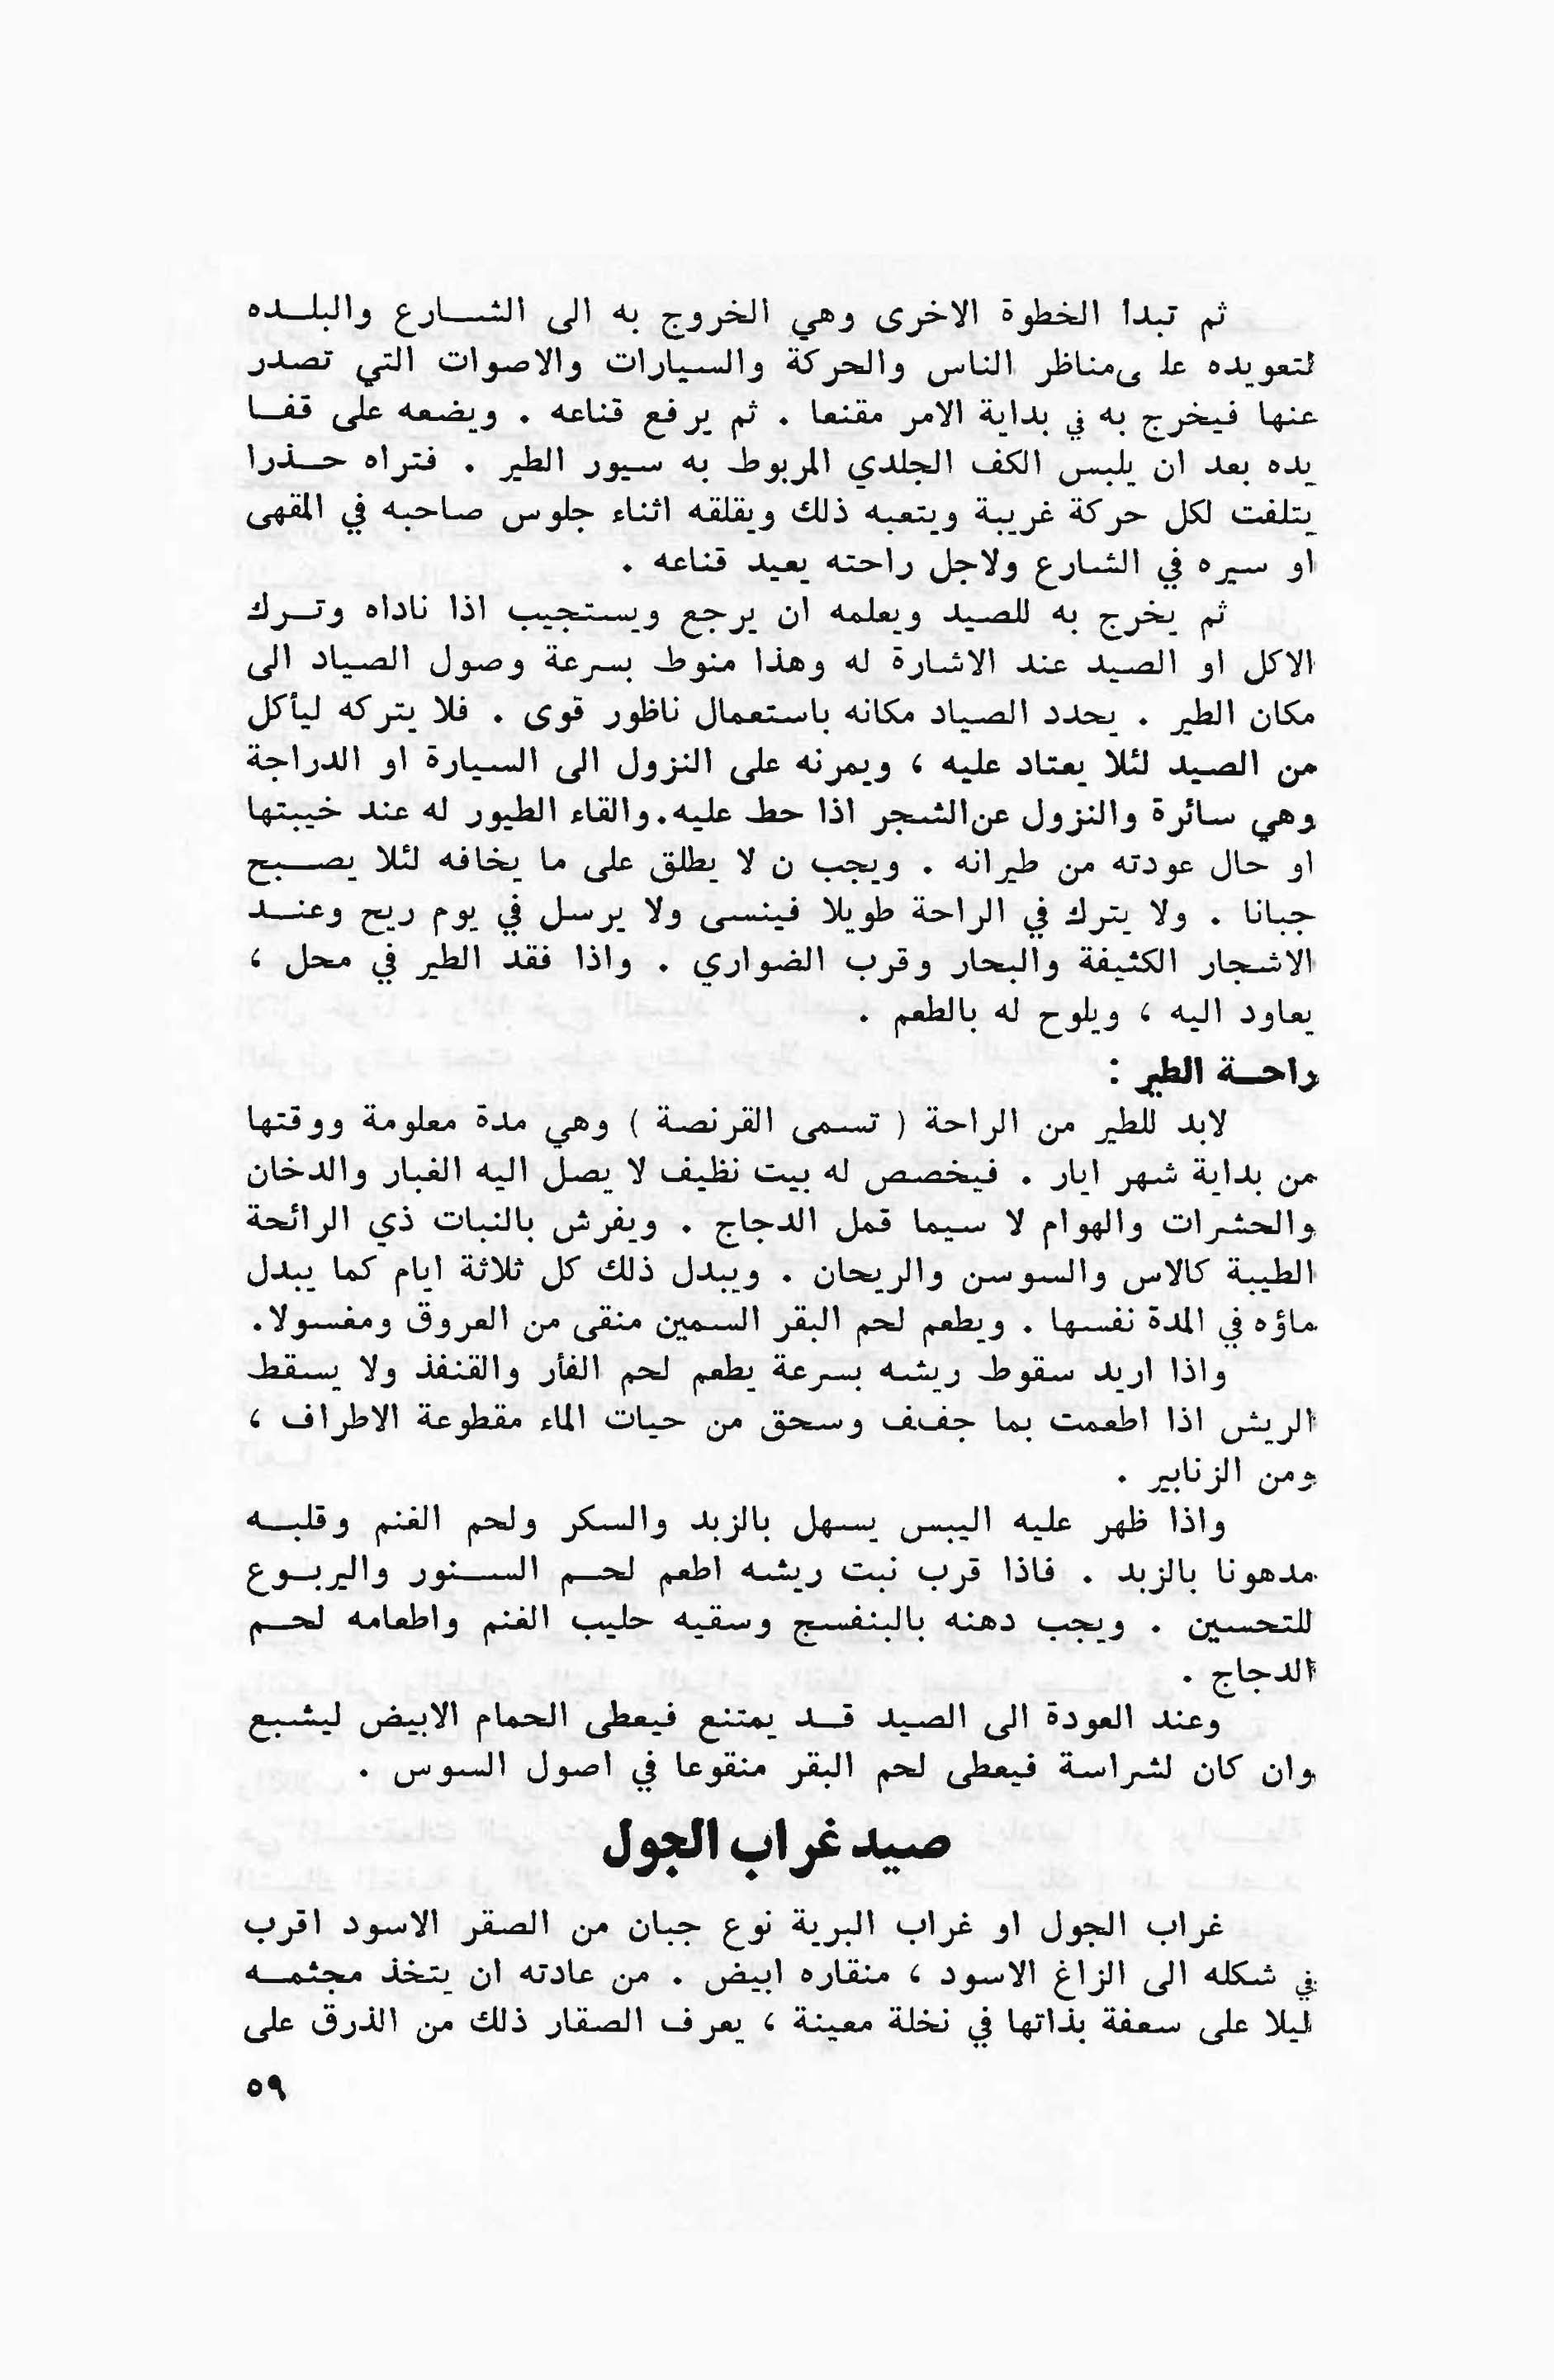 ثم تبدأ الخطوة الاخرى وهي الخروج به الى الشارع والبلده
لتعويده عل ىمناظر الناس والحركة والسيارات والاصوات التي تصدر
عنها فيخرج به في بداية الامر مقنعا . ثم يرفع قناعه . ويضعه على قفا
يده بعد ان يلبس الكف الجلدي المربوط به سيور الطير . فتراه حذرا
يتلفت لكل حركة غريبة ويتعبه ذلك ويقلقه اثناء جلوس صاحبه في المقهى
او سيره في الشارع ولاجل راحته يعيد قناعه .
ثم يخرج به للصيد ويعلمه ان يرجع ويستجيب اذا ناداه وترك
الاكل او الصيد عند الاشارة له وهذا منوط بسرعة وصول الصياد الى
مكان الطير . يحدد الصياد مكانه باستعمال ناظور قوى . فلا يتركه ليأكل
من الصيد لئلا يعتاد عليه ، ويمرنه على النزول الى السيارة او الدراجة
وهي سائرة والنزول عن الشجر اذا حط عليه . والقاء الطيور له عند خيبتها
او حال عودته من طيرانه . ويجب ن لا يطلق على ما يخافه لئلا يصبح
جبانا . ولا يترك في الراحة طويلا فينسى ولا يرسل في يوم ريح وعند
الاشجار الكثيفة والبحار وقرب الضواري . واذا فقد الطير في محل ،
يعاود اليه ، ويلوح له بالطعم .
راحة الطير :
لابد للطير من الراحة ( تسمى القرنصة ) وهي مدة معلومة ووقتها
من بداية شهر ايار . فيخصص له بيت نظيف لا يصل اليه الغبار والدخان
والحشرات والهوام لا سيما قمل الدجاج . ويفرش بالنبات ذي الرائحة
الطيبة كالاس والسوسن والريحان . ويبدل ذلك كل ثلاثة ايام كما يبدل
ماؤه في المدة نفسها . ويطعم لحم البقر السمين منقى من العروق ومغسولا .
واذا اريد سقوط ريشه بسرعة يطعم لحم الفأر والقنفذ ولا يسقط
الريش اذا اطعمت بما جفف وسحق من حيات الماء مقطوعة الاطراف ،
ومن الزنابير .
واذا ظهر عليه اليبس يسهل بالزبد والسكر ولحم الغنم وقلبه
مدهونا بالزبد . فاذا قرب نبت ريشه اطعم لحم السنور واليربوع
للتحسين . ويجب دهنه بالبنفسج وسقيه حليب الغنم واطعامه لحم
الدجاج .
وعند العودة الى الصيد قد يمتنع فيعطى الحمام الابيض ليشبع
وان كان لشراسة فيعطى لحم البقر منقوعا في اصول السوس .
صيد غراب الجول
غراب الجول او غراب البرية نوع جبان من الصقر الاسود اقرب
في شكله الى الزاغ الاسود ، منقاره ابيض . من عادته ان يتخذ مجثمه
ليلا على سعفة بذاتها في نخلة معينة ، يعرف الصقار ذلك من الذرق على
٥٩